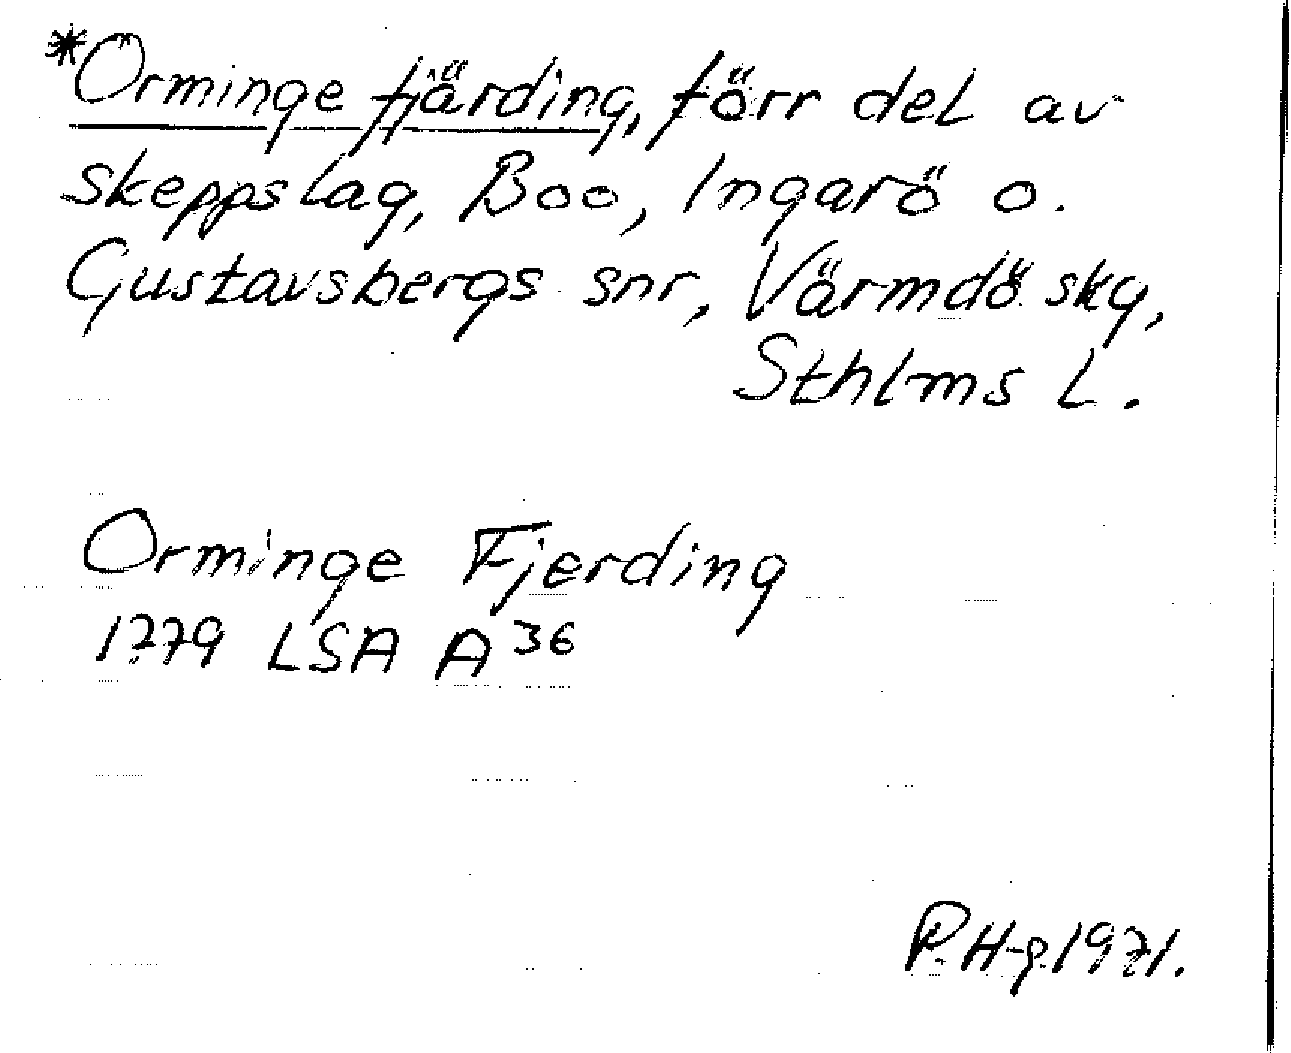 *Örminge fjärding, förr del av
skeppslag, Boo, Ingarö o.
Gustavsbergs snr, Värmdö skg,
Sthlms L.
Orminge Fjerding
1779 LSA A 36
P. H-g. 1971.